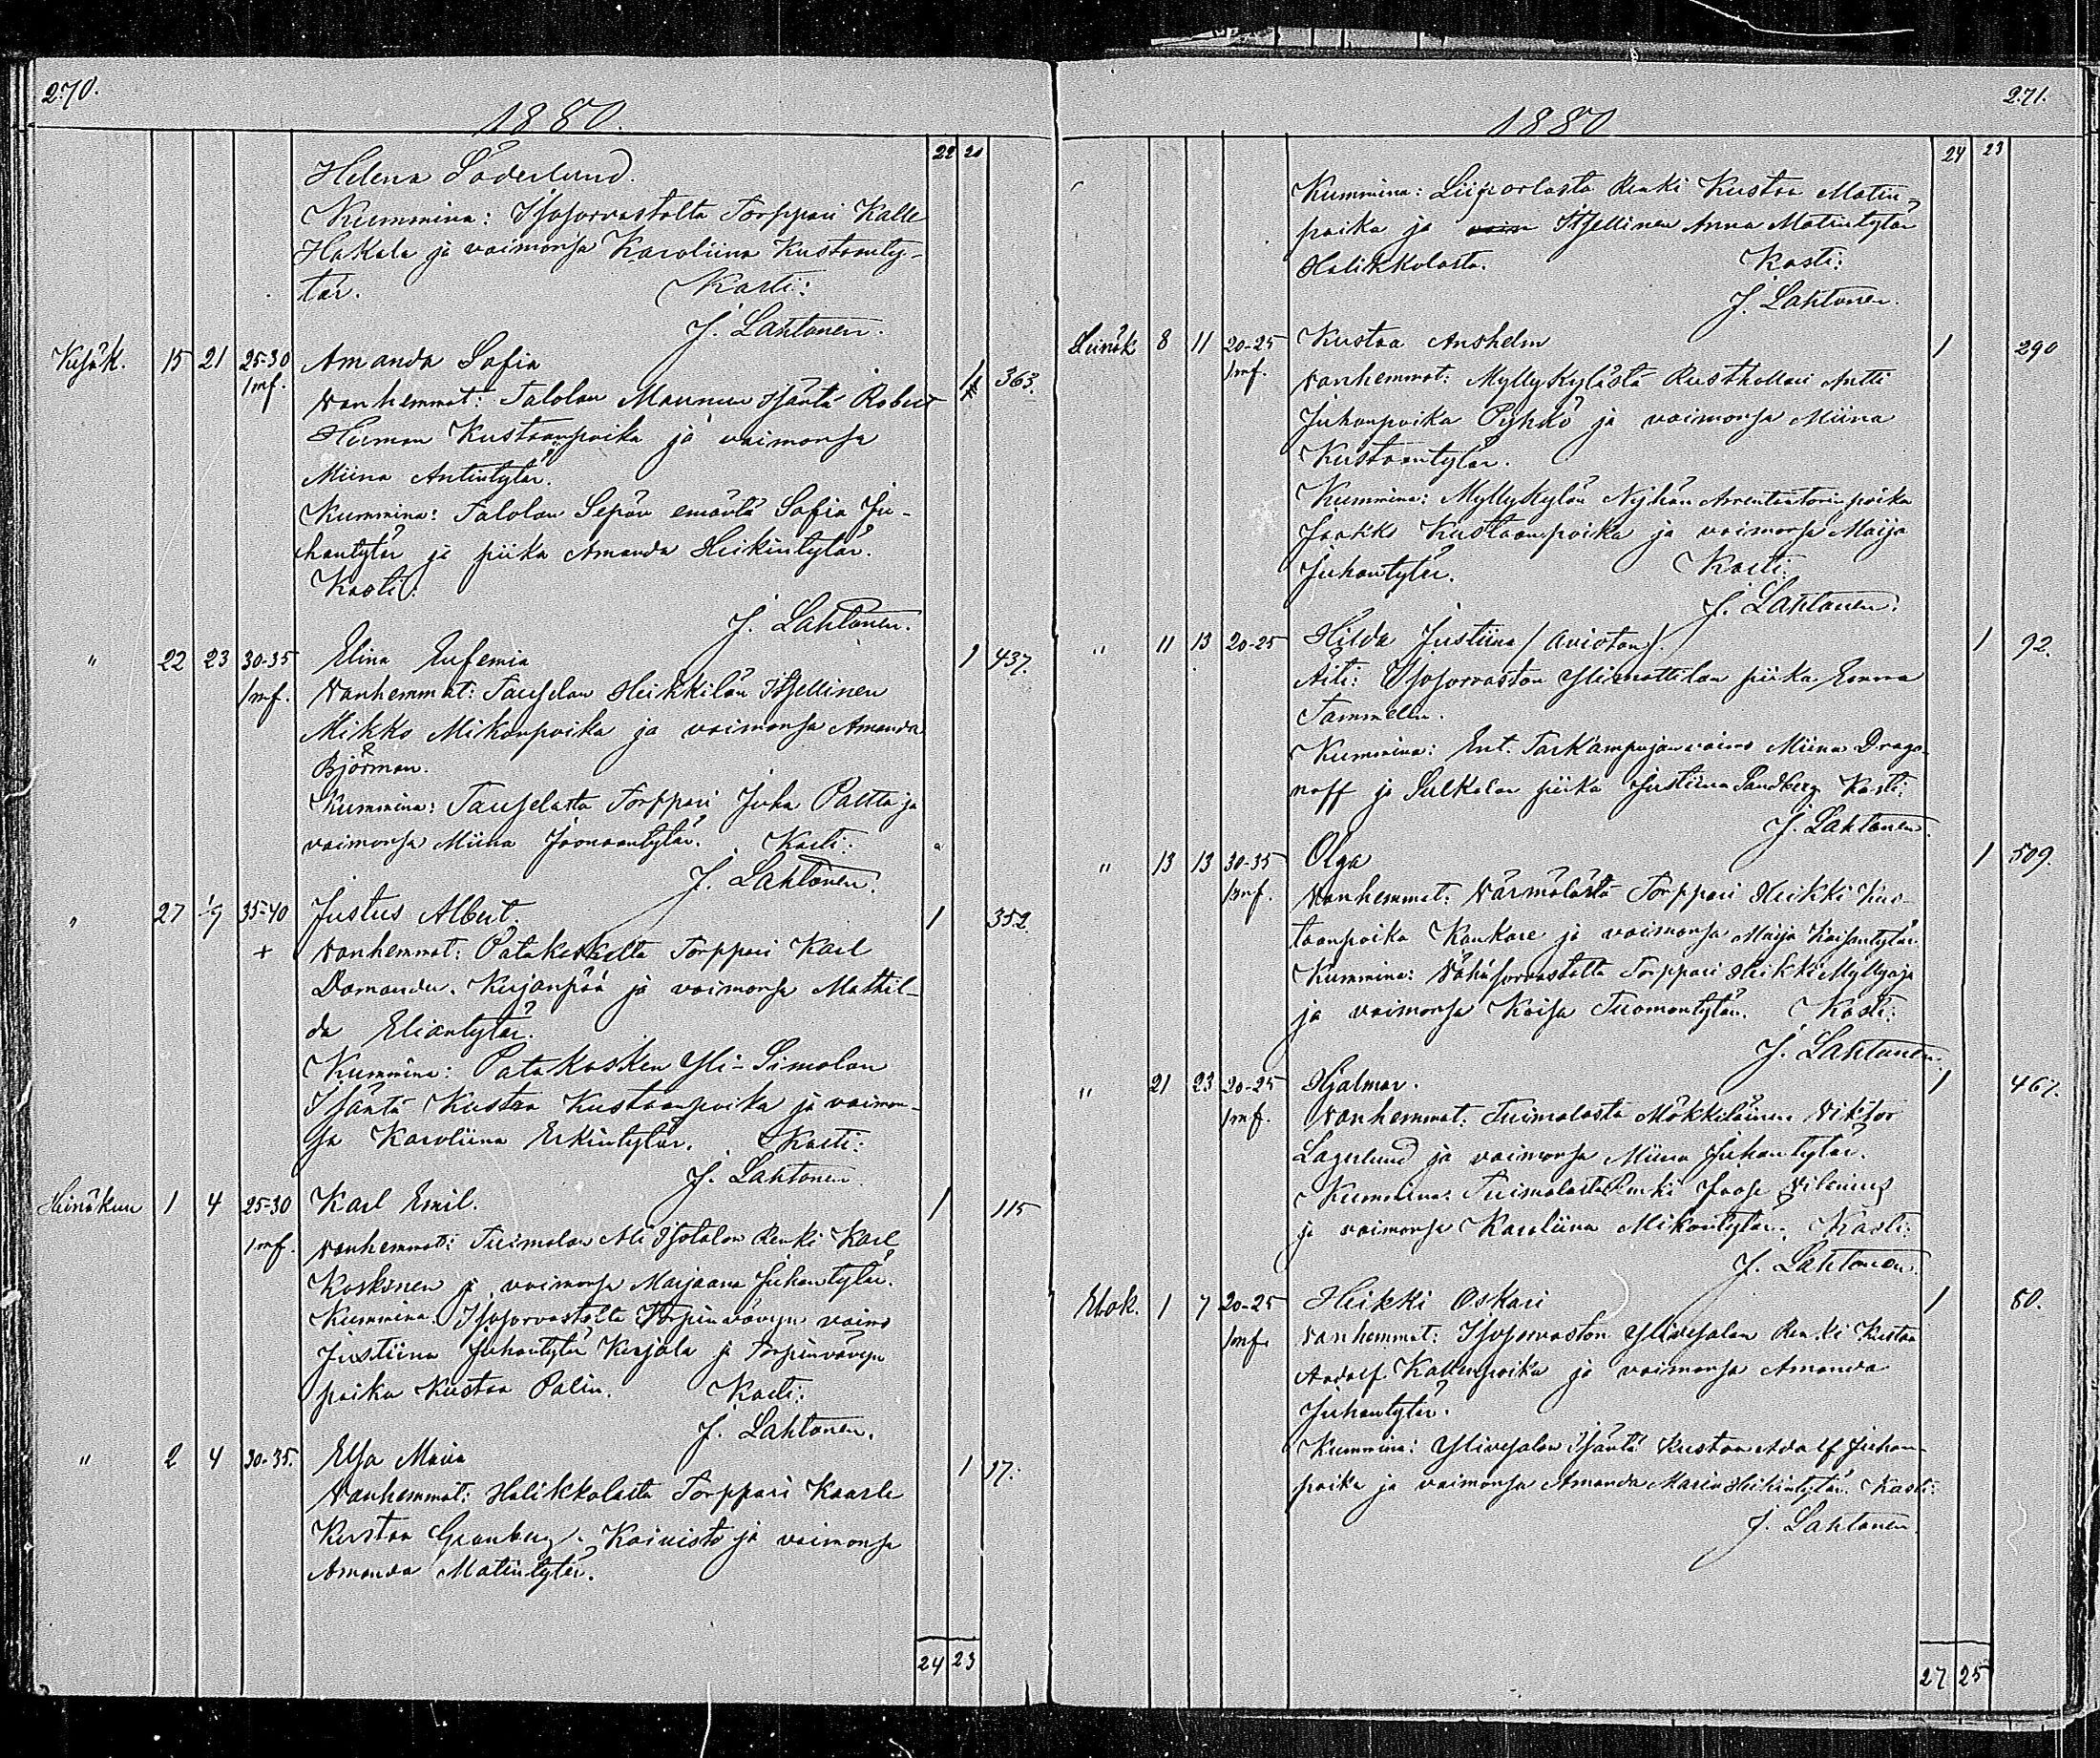 270.
1880.
22 21
Helena Söderlund.
Kummina: Isosorvastolta Torppari Kalle
Hakala ja vaimonsa Karoliina Kustaanty-
tär. Kasti:
J. Lahtonen.
Kesäk. 15 21 25-30 Amanda Sofia
1mf. Vanhemmat: Talolan Maunun Isäntä Robert 1 363.
Herman Kustaanpoika ja vaimonsa
Miina Antintytär.
Kummina: Talolan Sepän emäntä Sofia Ju-
hantytär ja piika Amanda Heikintytär.
Kasti:
J. Lahtonen.
" 22 23 30-35 Elina Eufemia 1 437.
1mf. Vanhemmat: Tauselan Heikkilän Itsellinen
Mikko Mikonpoika ja vaimonsa Amanda
Björman.
Kummina: Tauselasta Torppari Juha Paltta ja
vaimonsa Miina Joonaantytär. Kasti:
J. Lahtonen.
" 27 1/7 35-40 Justus Albert. 1 352.
+ Vanhemmat: Patakoskelta Torppari Karl
Domander. Kirjanpää ja vaimonsa Mathil-
da Eliantytär.
Kummina: Patakosken Yli-Simolan
Isäntä Kustaa Kustaanpoika ja vaimon-
sa Karoliina Erkintytär. Kasti:
J. Lahtonen.
Heinäkuu 1 4 25-30 Karl Emil. 1 115
1mf. Vanhemmat: Tuimalan Ali Isotalon Renki Karl
Koskinen ja vaimonsa Marjaana Juhantytär.
Kummina: Isosorvastolta Torpinvävyn vaimo
Justiina Juhantytär Kirjala ja Torpinvävyn
poika Kustaa Palin. Kasti:
J. Lahtonen.
" 2 4 30-35. Elsa Maria 1 17.
Vanhemmat: Halikkolasta Torppari Kaarle
Kustaa Granberg. Koivisto ja vaimonsa
Amanda Matintytär.
24 23
271.
1880
24 23
Kummina: Liipolasta Renki Kustaa Matin-
poika ja Itsellinen Anna Matintytär
Halikkolasta. Kasti:
J. Lahtonen.
Heinäk 8 11 20-25 Kustaa Anshelm 1 290
1mf. Vanhemmat: Myllykylästä Rusthollari Antti
Juhanpoika Pyhkö ja vaimonsa Miina
Kustaantytär.
Kummina: Myllykylän Nyhän Arrentaatorinpoika
Jaakko Kustaanpoika ja vaimonsa Maija
Juhantytär. Kasti:
J. Lahtonen.
" 11 13 20-25 Hilda Justiina (avioton). 1 92.
Äiti: Isosorvaston Ylimattilan piika Emma
Tammelin.
Kummina: Ent. Tarkampujan vaimo Miina Drago-
noff ja Sulkalan piika Justiina Sandberg Kasti:
J. Lahtonen.
" 13 13 30-35 Olga 1 509.
1mf. Vanhemmat: Värmälästä Torppari Heikki Kus-
taanpoika Kankare ja vaimonsa Maija Kaisantytär.
Kummina: Vähäsorvastolta Torppari Heikki Myllyoja
ja vaimonsa Kaisa Tuomontytär. Kasti:
J. Lahtonen.
" 21 23 20-25 Hjalmar. 1 467.
1mf. Vanhemmat: Tuimalasta Mökkiläinen Viktor
Lagerlund ja vaimonsa Miina Juhantytär.
Kummina: Tuimalasta Renki Joose Vilenius
ja vaimonsa Karoliina Mikontytär. Kasti:
J. Lahtonen.
Elok. 1 7 20-25 Heikki Oskari 1 80.
1mf. Vanhemmat: Isosorvaston Ylivesalan Renki Kustaa
Aadolf Kallenpoika ja vaimonsa Amanda
Juhantytär.
Kummina: Ylivesalan Isäntä Kustaa Adolf Juhan-
poika ja vaimonsa Amanda Maria Heikintytär. Kasti:
J. Lahtonen.
27 25